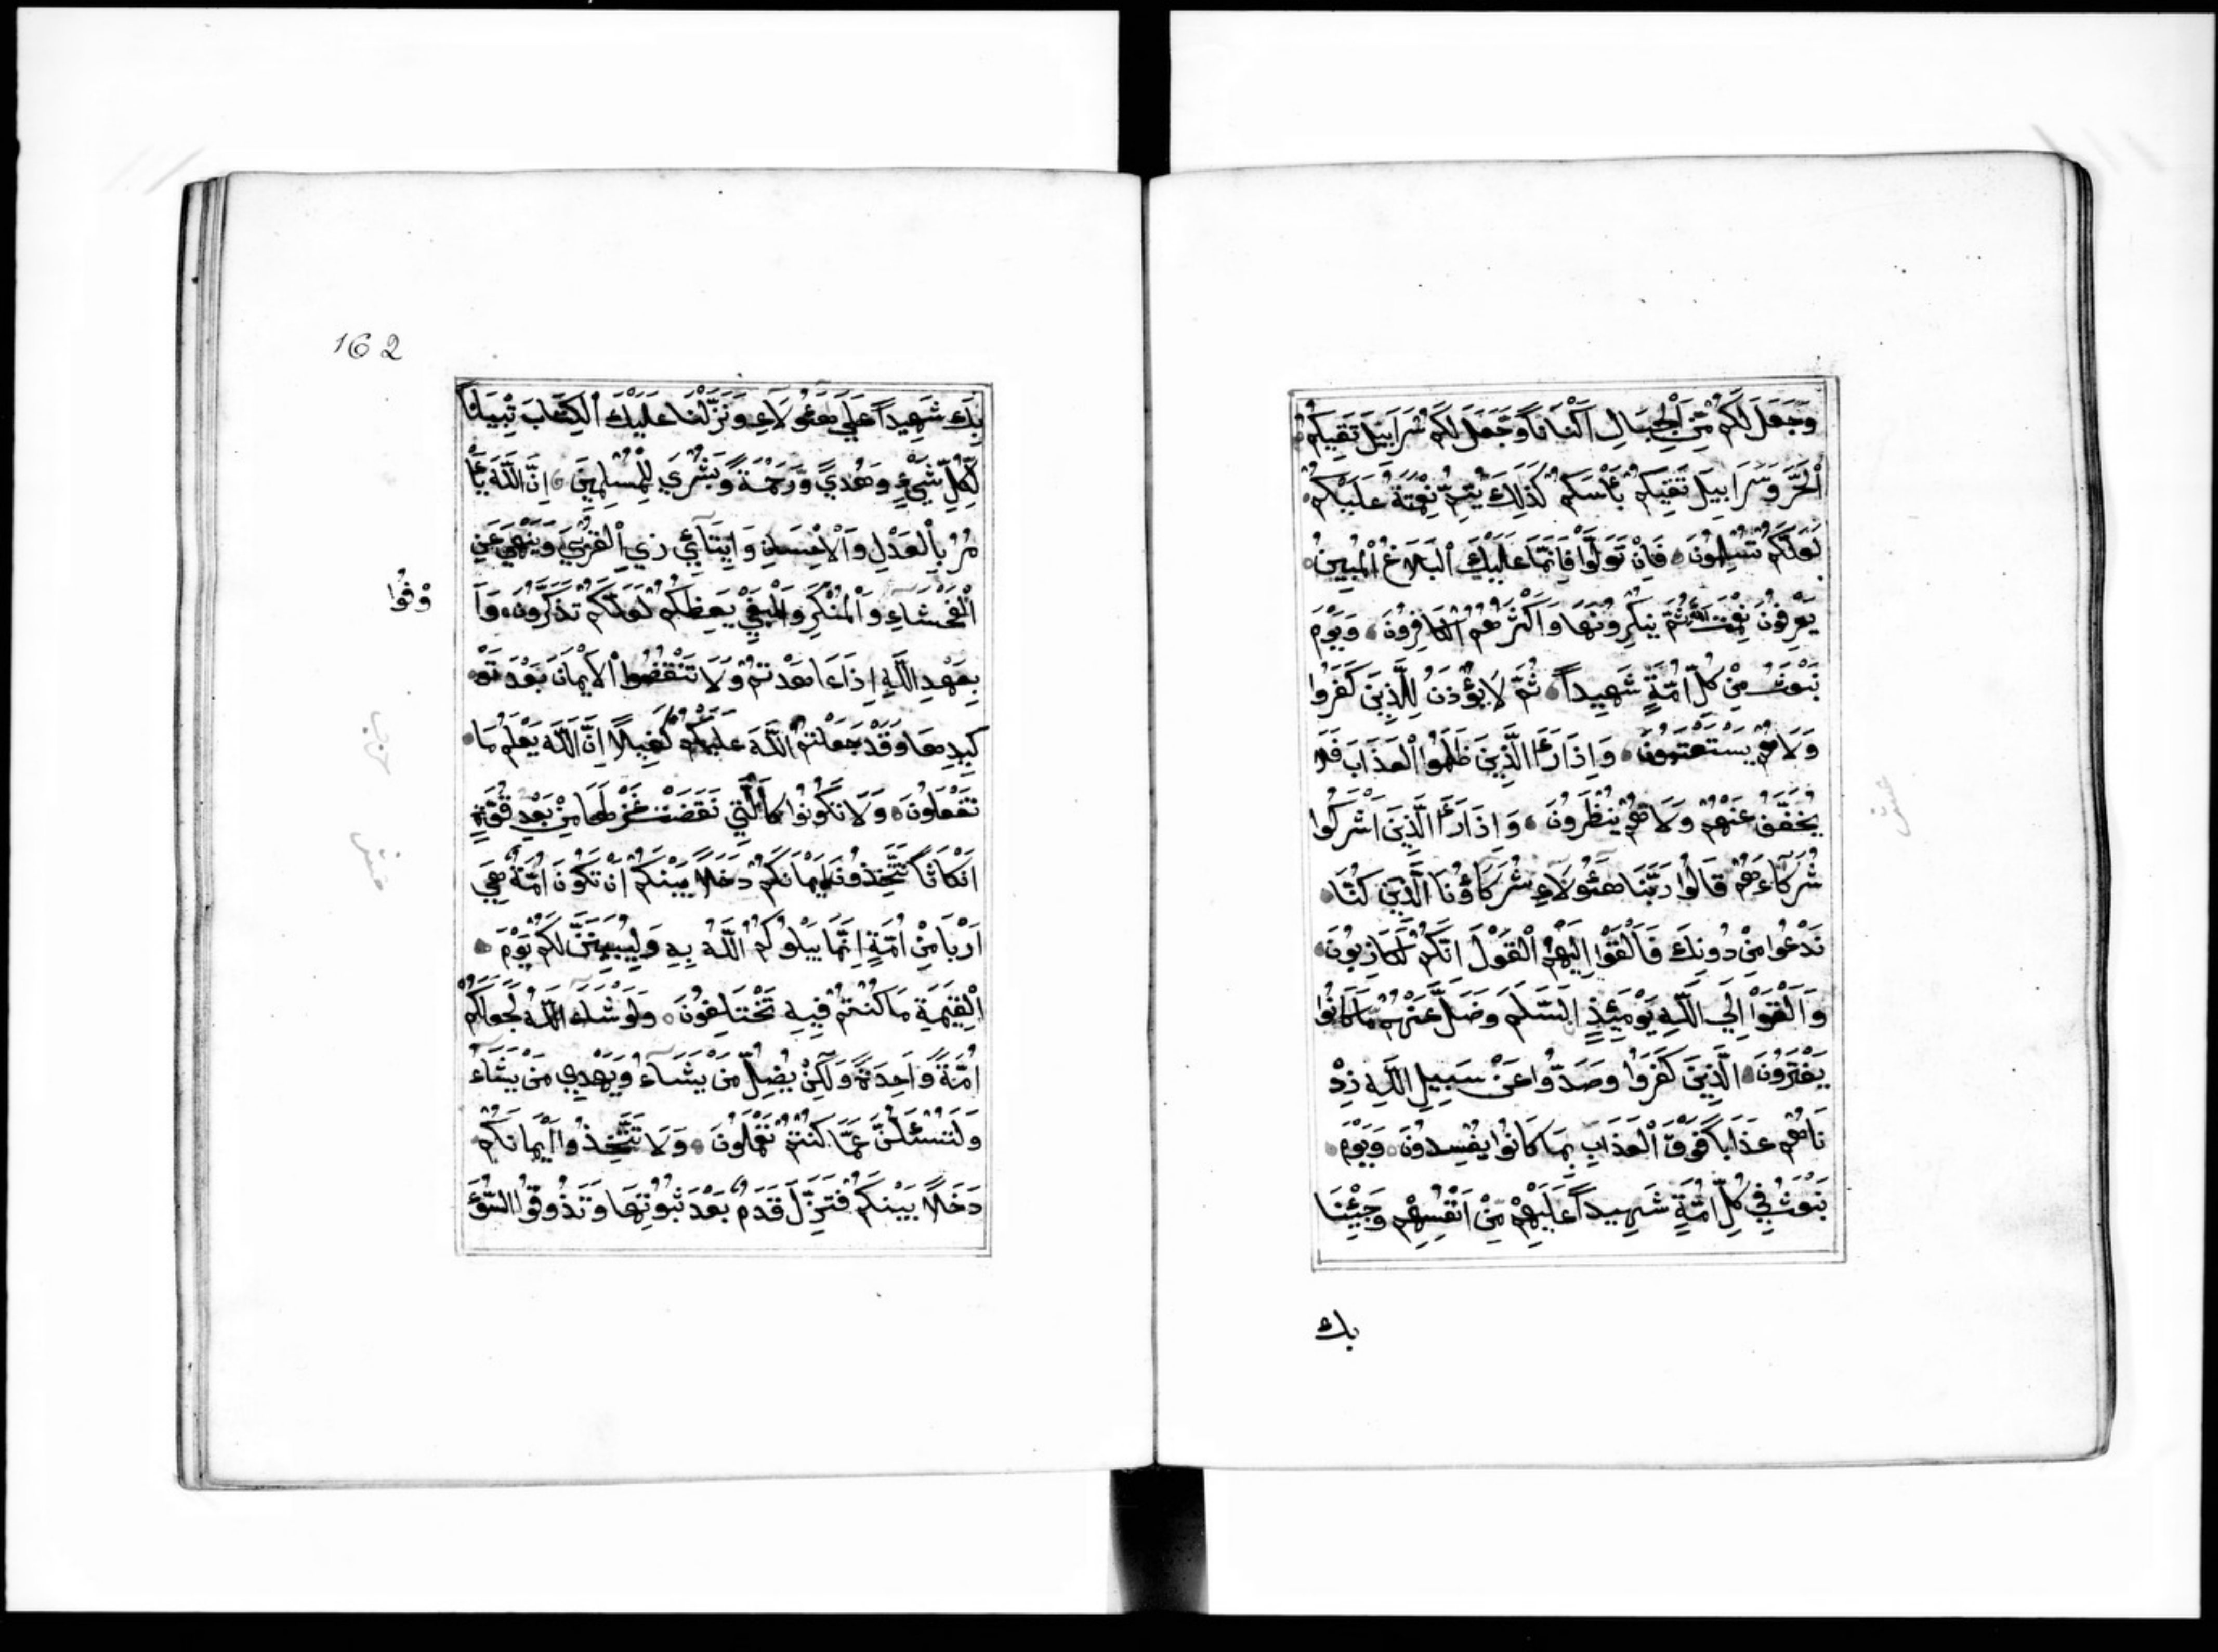 وَجَعَلَ لَكُمْ مِّنَ الْجِبَالِ أَكْنَانًا وَّجَعَلَ لَكُمْ سَرَابِيلَ تَقِيكُمُ
الْحَرَّ وَسَرَابِيلَ تَقِيكُمْ بَأْسَكُمْ كَذٰلِكَ يُتِمُّ نِعْمَتَهُ عَلَيْكُمْ
لَعَلَّكُمْ تُسْلِمُونَ فَاِنْ تَوَلَّوْا فَاِنَّمَا عَلَيْكَ الْبَلَاغُ الْمُبِينُ
يَعْرِفُونَ نِعْمَتَ اللّٰهِ ثُمَّ يُنْكِرُونَهَا وَاَكْثَرُهُمُ الْكَافِرُونَ وَيَوْمَ
نَبْعَثُ مِنْ كُلِّ اُمَّةٍ شَهِيدًا ثُمَّ لَا يُؤْذَنُ لِلَّذِينَ كَفَرُوا
وَلَا هُمْ يُسْتَعْتَبُونَ وَاِذَا رَءَا الَّذِينَ ظَلَمُوا الْعَذَابَ فَلَا
يُخَفَّفُ عَنْهُمْ وَلَا هُمْ يُنْظَرُونَ وَاِذَا رَءَا الَّذِينَ اَشْرَكُوا
شُرَكَاءَهُمْ قَالُوا رَبَّنَا هٰؤُلَاءِ شُرَكَاؤُنَا الَّذِينَ كُنَّا
نَدْعُوا مِنْ دُونِكَ فَاَلْقَوْا اِلَيْهِمُ الْقَوْلَ اِنَّكُمْ لَكَاذِبُونَ
وَاَلْقَوْا اِلَي اللّٰهِ يَوْمَئِذٍ السَّلَمَ وَضَلَّ عَنْهُمْ مَّا كَانُوا
يَفْتَرُونَ الَّذِينَ كَفَرُوا وَصَدُّوا عَنْ سَبِيلِ اللّٰهِ زِدْ
نَاهُمْ عَذَابًا فَوْقَ الْعَذَابِ بِمَا كَانُوا يُفْسِدُونَ وَيَوْمَ
نَبْعَثُ فِي كُلِّ اُمَّةٍ شَهِيدًا عَلَيْهِمْ مِّنْ اَنْفُسِهِمْ وَجِئْنَا
بك
162
بِكَ شَهِيدًا عَلَي هٰؤُلَاءِ وَنَزَّلْنَا عَلَيْكَ الْكِتَابَ تِبْيَانًا
لِّكُلِّ شَيْءٍ وَهُدًي وَّرَحْمَةً وَّبُشْرَي لِلْمُسْلِمِينَ اِنَّ اللّٰهَ يَأْ
مُرُ بِالْعَدْلِ وَالْاِحْسَانِ وَاِيتَائِ ذِي الْقُرْبَي وَيَنْهَي عَنِ
الْفَحْشَاءِ وَالْمُنْكَرِ وَالْبَغْيِ يَعِظُكُمْ لَعَلَّكُمْ تَذَكَّرُونَ وَاَ
وْفُوا
بِعَهْدِ اللّٰهِ اِذَا عَاهَدْتُمْ وَلَا تَنْقُضُوا الْاَيْمَانَ بَعْدَ تَوْ
كِيدِهَا وَقَدْ جَعَلْتُمُ اللّٰهَ عَلَيْكُمْ كَفِيلًا اِنَّ اللّٰهَ يَعْلَمُ مَا
تَفْعَلُونَ وَلَا تَكُونُوا كَالَّتِي نَقَضَتْ غَزْلَهَا مِنْ بَعْدِ قُوَّةٍ
اَنْكَاثًا تَتَّخِذُونَ اَيْمَانَكُمْ دَخَلًا بَيْنَكُمْ اَنْ تَكُونَ اُمَّةٌ هِيَ
اَرْبَا مِنْ اُمَّةٍ اِنَّمَا يَبْلُوكُمُ اللّٰهُ بِهِ وَلَيُبَيِّنَنَّ لَكُمْ يَوْمَ
الْقِيٰمَةِ مَا كُنْتُمْ فِيهِ تَخْتَلِفُونَ وَلَوْ شَاءَ اللّٰهُ لَجَعَلَكُمْ
اُمَّةً وَّاحِدَةً وَّلٰكِنْ يُّضِلُّ مَنْ يَّشَاءُ وَيَهْدِي مَنْ يَّشَاءُ
وَلَتُسْئَلُنَّ عَمَّا كُنْتُمْ تَعْمَلُونَ وَلَا تَتَّخِذُوا اَيْمَانَكُمْ
دَخَلًا بَيْنَكُمْ فَتَزِلَّ قَدَمٌ بَعْدَ ثُبُوتِهَا وَتَذُوقُوا السُّوءَ